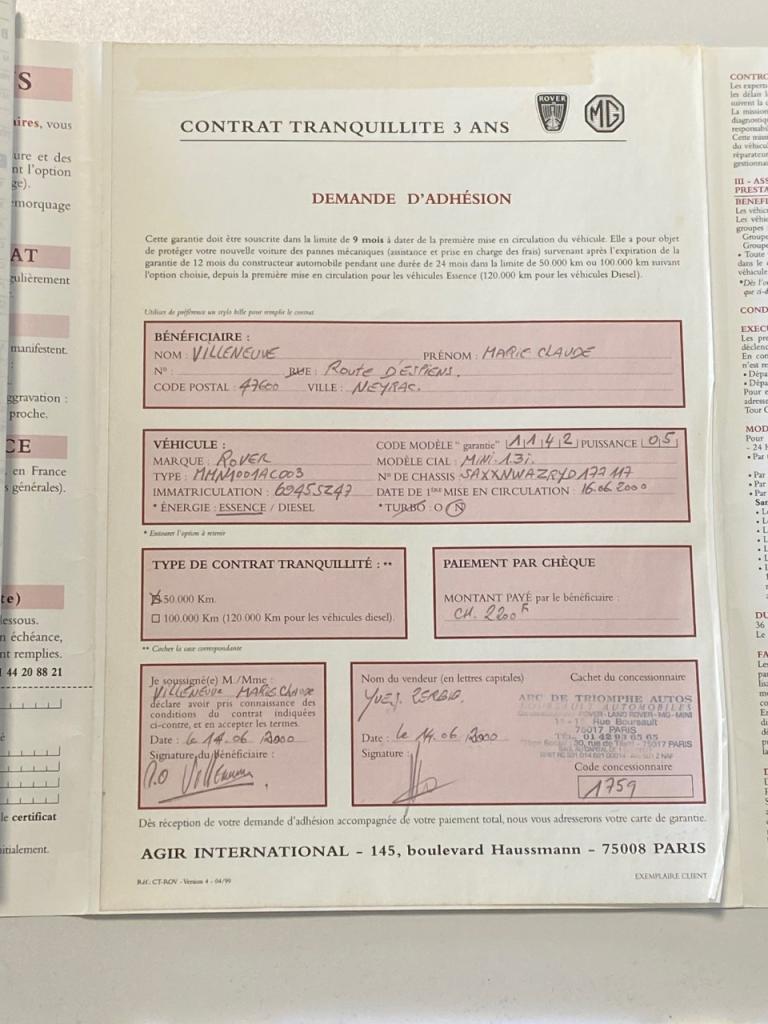 S
aires, vous
ure et des
nt l'option
ge).
morquage
AT
gulièrement
manifestent.
:
ggravation :
proche.
CE
en France
s générales).
te)
lessous.
n échéance,
nt remplies.
1 44 20 88 21
é
le certificat
nitialement.
ROVER
MG
CONTRAT TRANQUILLITE 3 ANS
DEMANDE D'ADHÉSION
Cette garantie doit être souscrite dans la limite de 9 mois à dater de la première mise en circulation du véhicule. Elle a pour objet
de protéger votre nouvelle voiture des pannes mécaniques (assistance et prise en charge des frais) survenant après l'expiration de la
garantie de 12 mois du constructeur automobile pendant une durée de 24 mois dans la limite de 50.000 km ou 100.000 km suivant
l'option choisie, depuis la première mise en circulation pour les véhicules Essence (120.000 km pour les véhicules Diesel).
Utilisez de préférence un stylo bille pour remplir le contrat
BÉNÉFICIAIRE :
NOM : VILLENEUVE PRÉNOM : MARIE CLAUDE
N° : RUE : Route D'ESPIENS.
CODE POSTAL : 47600 VILLE : NEYRAC.
VÉHICULE : CODE MODÈLE "garantie" 1 1 4 2 PUISSANCE 0 5
MARQUE : ROVER MODÈLE CIAL : MINI 1.3i.
TYPE : MHN1001AC003 N° DE CHASSIS SAXXNWAZRYD177117
IMMATRICULATION : 694SSZ47 DATE DE 1ÈRE MISE EN CIRCULATION : 16.06 2000
* ÉNERGIE : ESSENCE / DIESEL * TURBO : O N
* Entourer l'option à retenir
TYPE DE CONTRAT TRANQUILLITÉ : ** PAIEMENT PAR CHÈQUE
50.000 Km. MONTANT PAYÉ par le bénéficiaire :
100.000 Km (120.000 Km pour les véhicules diesel). CH. 2200 F
** Cocher la case correspondante
Je soussigné(e) M./Mme
VILLENEUVE MARIE CLAUDE
déclare avoir pris connaissance des
conditions du contrat indiquées
ci-contre, et en accepter les termes.
Date : le 14.06 /2000
Signature du Bénéficiaire :
P.O Villeneuve
Nom du vendeur (en lettres capitales) Cachet du concessionnaire
YVES. ZERBIB.
ARC DE TRIOMPHE AUTOS
BOURSAULT AUTOMOBILES
ROVER-LAND ROVER-MG-MINI
Rue Boursault
75017 PARIS
TÉL. 01 42 93 65 65
75017 PARIS
Date : le 14.06 /2000
Signature :
Code concessionnaire
1759
Dès réception de votre demande d'adhésion accompagnée de votre paiement total, nous vous adresserons votre carte de garantie.
AGIR INTERNATIONAL - 145, boulevard Haussmann - 75008 PARIS
Réf.: CT-ROV - Version 4 - 04/99 EXEMPLAIRE CLIENT
CONTRO
Les expert
les délan l
suivent la
La mission
diagnostiqu
responsabi
Cette miss
du véhicul
réparateur
gestionnai
III - ASS
PRESTA
BÉNÉFI
Les véhic
Les véhic
groupes :
Groupe
Groupe
• Toute
dans le
véhicule
*Dès l'o
que ci-d
COND
EXÉCU
Les pre
déclenc
En con
n'est re
• Dépa
• Dépa
Pour e
adresse
Tour C
MOD
Pour
- 24 H
• Par
• Par
• Par
• Par
San
DU
36
Le
FA